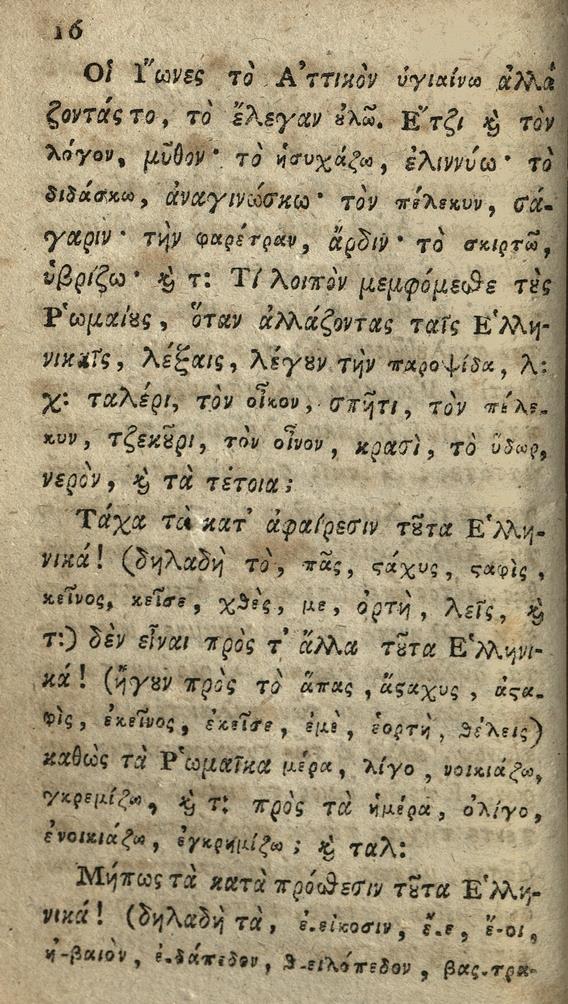 16
Οἱ Ἴωνες τὸ Ἀττικὸν ὑγιαίνω ἀλλά
ζοντάς το, τὸ ἔλεγαν ȣ̓λῶ. Ἔτζι ϗ̀ τὸν
λόγον, μῦθον· τὸ ἡσυχάζω, ἐλιννύω· τὸ
διδάσκω, ἀναγινώσκω· τὸν πέλεκυν, σά-
γαριν· τὴν φαρέτραν, ἄρδιν· τὸ σκιρτῶ,
ὑβρίζω· ϗ̀ τ: Τί λοιπὸν μεμφόμεσθε τȣ̀ς
Ῥωμαίȣς, ὅταν ἀλλάζοντας ταῖς Ἑλλη-
νικαῖς, λέξαις, λέγȣν τὴν παροψίδα, λ:
χ: ταλέρι, τὸν οἶκον, σπῆτι, τὸν πέλε-
κυν, τζεκȣ͂ρι, τὸν οἶνον, κρασὶ, τὸ ὕδωρ,
νερὸν, ϗ̀ τὰ τέτοια;
Τάχα τὰ κατ' ἀφαίρεσιν τȣ͂τα Ἑλλη-
νικά! (δηλαδὴ τὸ, πᾶς, ϛάχυς, ϛαφὶς,
κεῖνος, κεῖσε, χθὲς, με, ὀρτὴ, λεῖς, ϗ̀
τ:) δὲν εἶναι πρὸς τ' ἄλλα τȣ͂τα Ἑλληνι-
κά! (ἤγȣν πρὸς τὸ ἅπας, ἄϛαχυς, ἀϛα-
φὶς, ἐκεῖνος, ἐκεῖσε, ἐμὲ, ἑορτὴ, θέλεις)
καθὼς τὰ Ῥωμαῖκα μέρα, λίγο, νοικιάζω,
γκρεμίζω, ϗ̀ τ: πρὸς τὰ ἡμέρα, ὀλίγο,
ἐνοικιάζω, ἐγκρημίζω; ϗ̀ ταλ:
Μήπως τὰ κατὰ πρόσθεσιν τȣ͂τα Ἑλλη-
νικά! (δηλαδὴ τὰ, ἐ-είκοσιν, ἔ-ε, ἕ-οι,
ἠ-βαιὸν, ἐ-δάπεδον, θ-ειλόπεδον, βας-τρα-